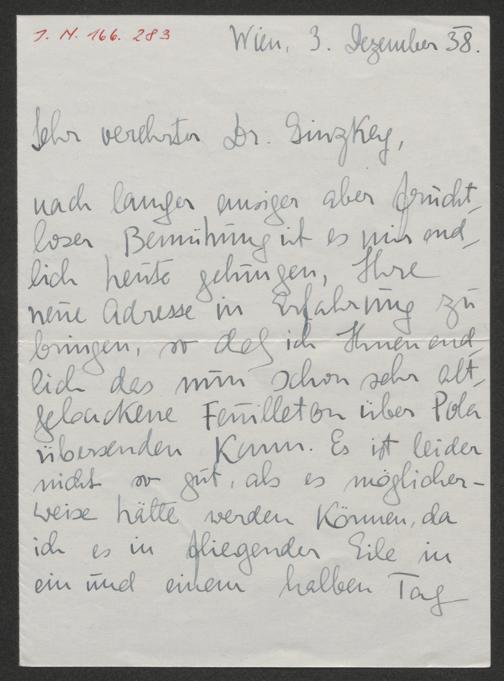 J. N. 166. 283
Wien, 3. Dezember 38.
Sehr verehrter Dr. Ginzkey,
nach langer emsiger aber frucht-
loser Bemühung ist es mir end-
lich heute gelungen, Ihre
neue Adresse in Erfahrung zu
bringen, so daß ich Ihnen end-
lich das nun schon sehr alt-
gebackene Feuilleton über Pola
übersenden kann. Es ist leider
nicht so gut, als es möglicher-
weise hätte werden können, da
ich es in fliegender Eile in
ein und einem halben Tag